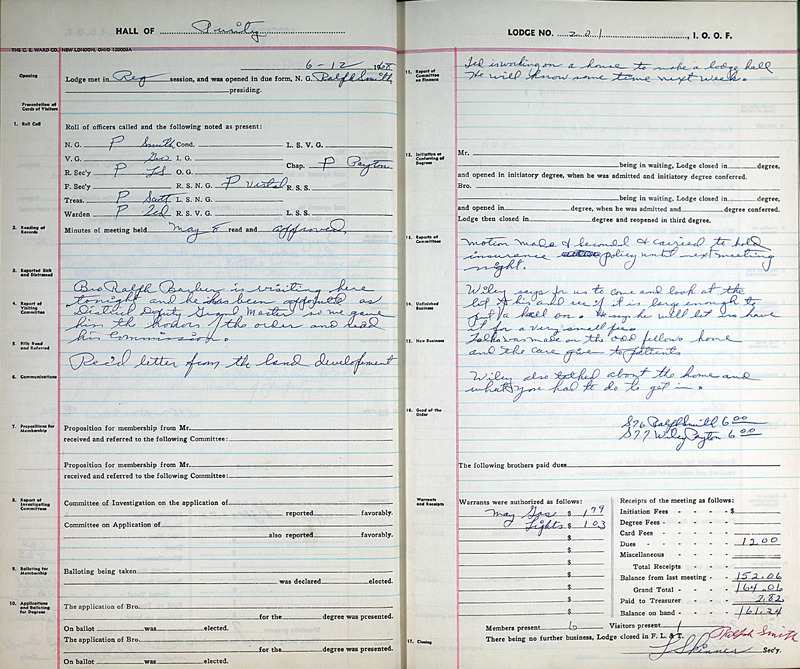 HALL OF Purity
THE C. E. WARD CO., NEW LONDON, OHIO
6-12 19
Opening
Lodge met in Reg session, and was opened in due form, N. G. Ralph Smith
presiding.
Presentation of Cards of Visitors
1. Roll Call
Roll of officers called and the following noted as present:
N. G. P Smith Cond. L. S. V. G.
V. G. Geo I. G. Chap. P Payton
R. Sec'y P LS O. G.
F. Sec'y R. S. N. G. P R. S. S.
Treas. P L. S. N. G.
Warden P Ted R. S. V. G. L. S. S.
2. Reading of Records
Minutes of meeting held May 8 read and approved
3. Reported Sick and Distressed
Bro Ralph Barber is visiting here
tonight and he has been as
4. Report of Visiting Committee
District Deputy Grand Master so we gave
him the honors of the order and read
his Commission.
5. Bills Read and Referred
Rec'd letter from the land development
6. Communications
7. Propositions for Membership
Proposition for membership from Mr.
received and referred to the following Committee:
Proposition for membership from Mr.
received and referred to the following Committee:
8. Report of Investigating Committees
Committee of Investigation on the application of
reported favorably.
Committee on Application of
also reported favorably.
9. Balloting for Membership
Balloting being taken
was declared elected.
10. Applications and Balloting for Degrees
The application of Bro.
for the degree was presented.
On ballot was elected.
The application of Bro.
for the degree was presented.
On ballot was elected.
LODGE NO. 201, I. O. O. F.
11. Report of Committee on Finance
Ted is working on a house to make a lodge hall
He will know some time next week.
12. Initiation or Conferring of Degrees
Mr.
being in waiting, Lodge closed in degree,
and opened in initiatory degree, when he was admitted and initiatory degree conferred.
Bro.
being in waiting, Lodge closed in degree,
and opened in degree, when he was admitted and degree conferred.
Lodge then closed in degree and reopened in third degree.
13. Reports of Committees
motion made & second & carried to hold
insurance policy until next meeting
night.
Wiley says for us to come and look at the
14. Unfinished Business
lot of his and see if it is large enough to
put a hall on. He says he will let us have
it for a very small fee.
15. New Business
Talks was made on the odd fellows home
and the care given to patients
Wiley also talked about the home and
what you had to do to get in.
16. Good of the Order
576 Ralph Smith 6 00
577 Wiley Payton 6 00
The following brothers paid dues
Warrants and Receipts
Warrants were authorized as follows:
May Gas $ 1 79
Lights $ 1 03
$
$
$
$
$
$
$
Receipts of the meeting as follows:
Initiation Fees - $
Degree Fees
Card Fees
Dues 12 00
Miscellaneous
Total Receipts
Balance from last meeting 152.06
Grand Total 164.06
Paid to Treasurer 2.82
Balance on hand 161.24
Members present 6 Visitors present 1
17. Closing
There being no further business, Lodge closed in F. L. & T. Ralph Smith
L Skinner Sec'y.